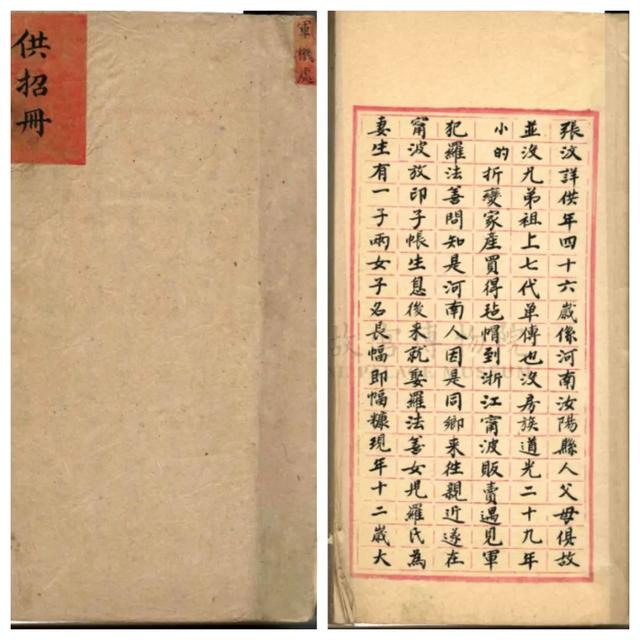 軍機處
供招冊
張汶詳供年四十六歲係河南汝陽縣人父母俱故
並沒兄弟祖上七代單傳也沒房族道光二十九年
小的折變家產買得毡帽到浙江甯波販賣遇見軍
犯羅法善問知是河南人因是同鄉來往親近遂在
甯波放印子帳生息後來就娶羅法善女兒羅氏為
妻生有一子兩女子名長幅即幅糠現年十二歲大
故宮博物院
PALACE MUSEUM